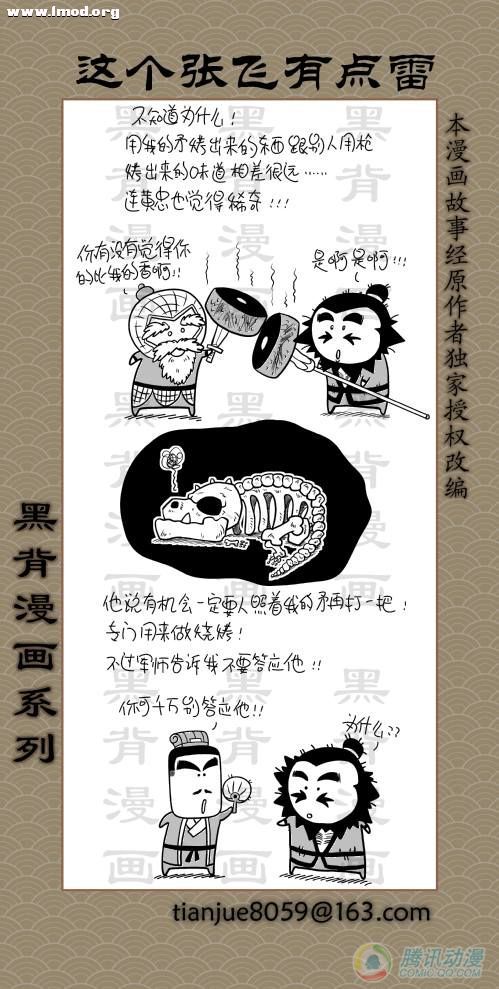 www.1mod.org
这个张飞有点雷
本漫画故事经原作者独家授权改编
不知道为什么！
用我的矛烤出来的东西跟别人用枪
烤出来的味道相差很远……
连黄忠也觉得稀奇！！！
你有没有觉得你
的比我的香啊！！
是啊是啊！！！
他说有机会一定要人照着我的矛再打一把！
专门用来做烧烤！
不过军师告诉我不要答应他！！
你可千万别答应他！！
为什么？？
黑背漫画系列
黑背漫画
黑背漫画
黑背漫画
黑背漫画
黑背漫画
黑背漫画
tianjue8059@163.com
腾讯动漫
COMIC.QQ.COM